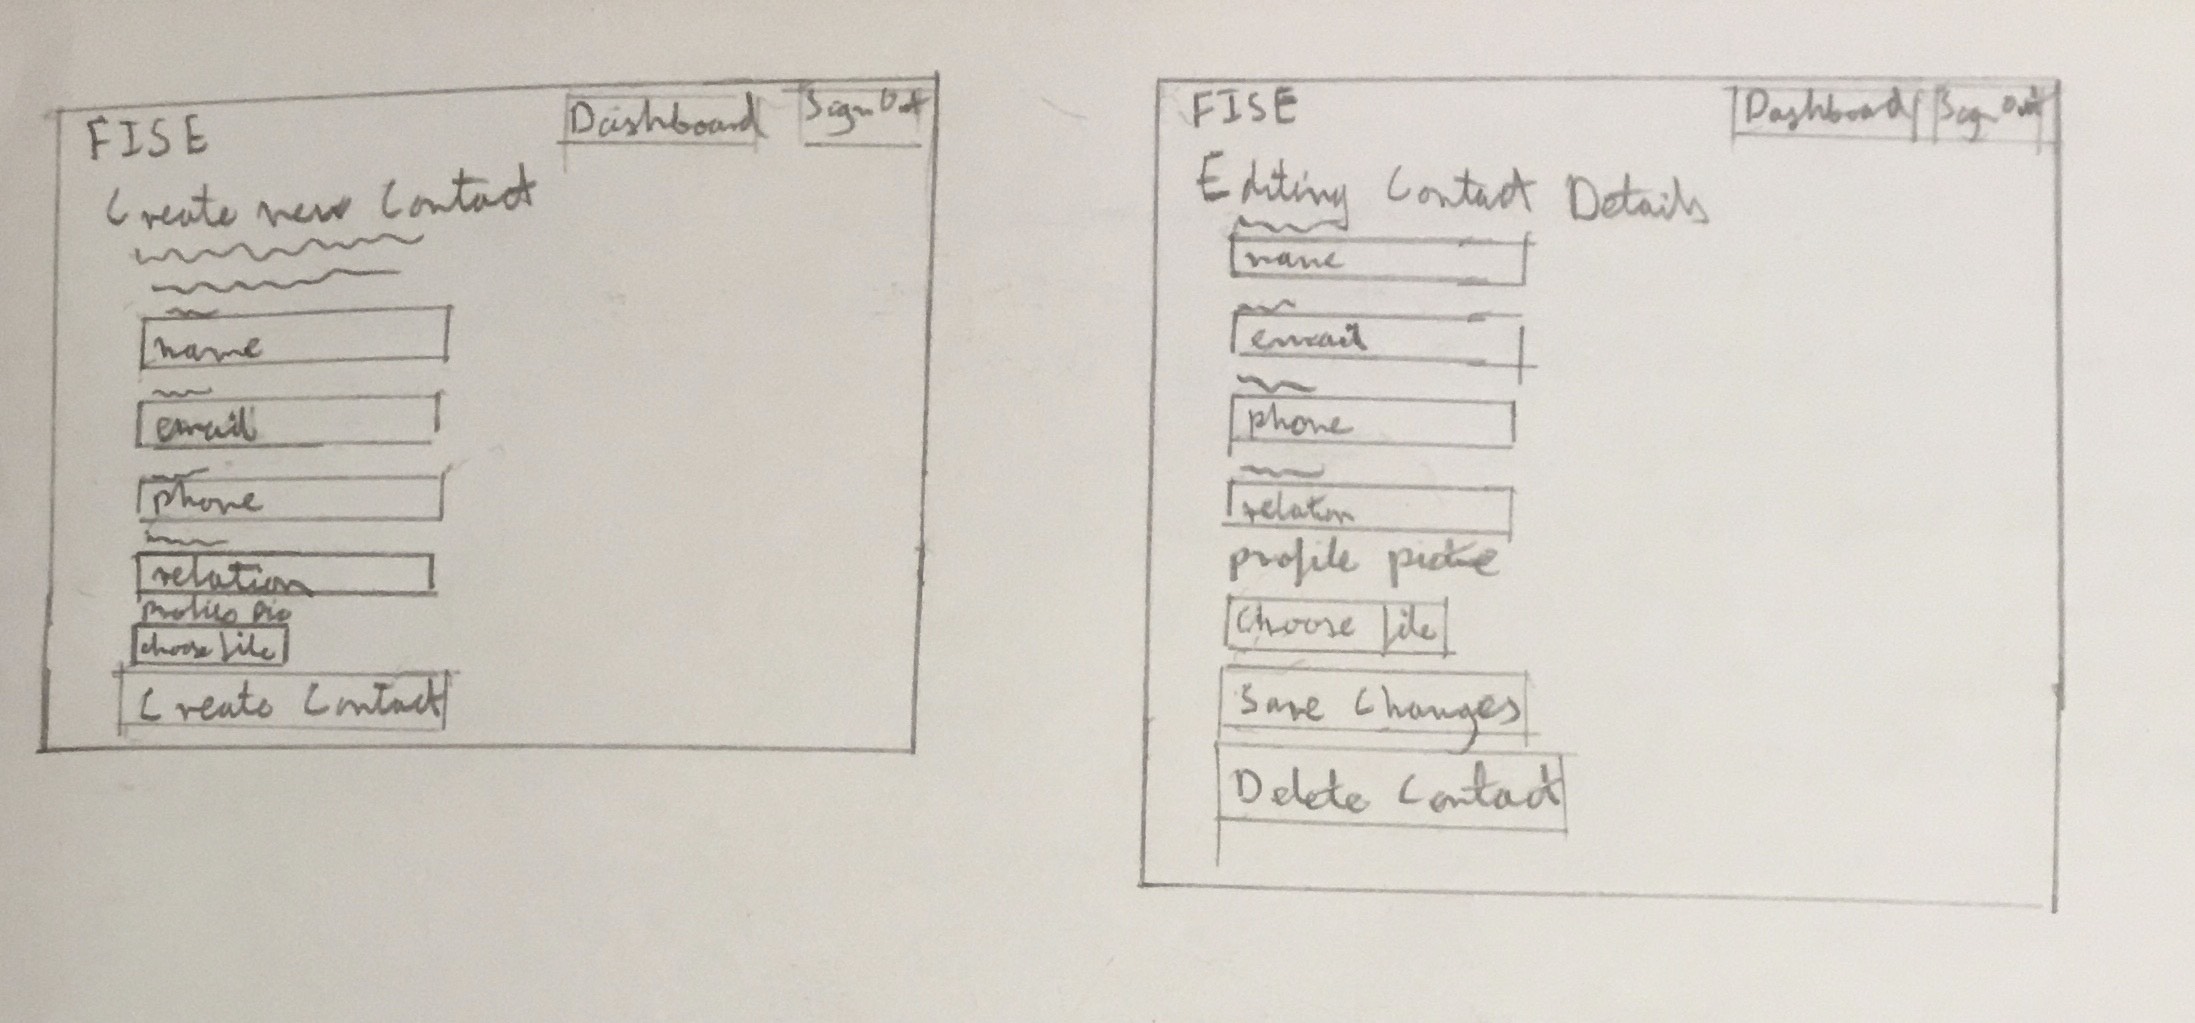 FISE
Dashboard
Sign Out
Create new Contact
name
email
phone
relation
choose file
Create Contact
FISE
Dashboard
Sign Out
Editing Contact Details
name
email
phone
relation
profile picture
Choose file
Save Changes
Delete Contact